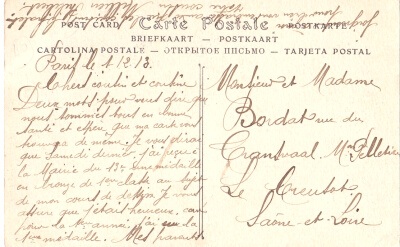 POST CARD Carte Postale POSTKARTE
BRIEFKAART — POSTKAART
CARTOLINA POSTALE — ОТКРЫТОЕ ПИСЬМО — TARJETA POSTAL
Paris le 1.12.13.
Chers cousin et cousine
Deux mots pour vous dire que
nous sommes tous en bonne
santé et espère que ma carte vous
trouvera de même. Je vous dirai
que samedi dernier j'ai reçu à
la Mairie du 13e une médaille
en bronze de 1re classe au sujet
de mon cours de. Je vous
assure que j'étais heureux, car
pour la 1re année j'ai eu la
1re médaille. Mes parents
Monsieur et Madame
Bordat rue du
Transvaal. Mon Pelletier
Le Creusot
Saône-et-Loire